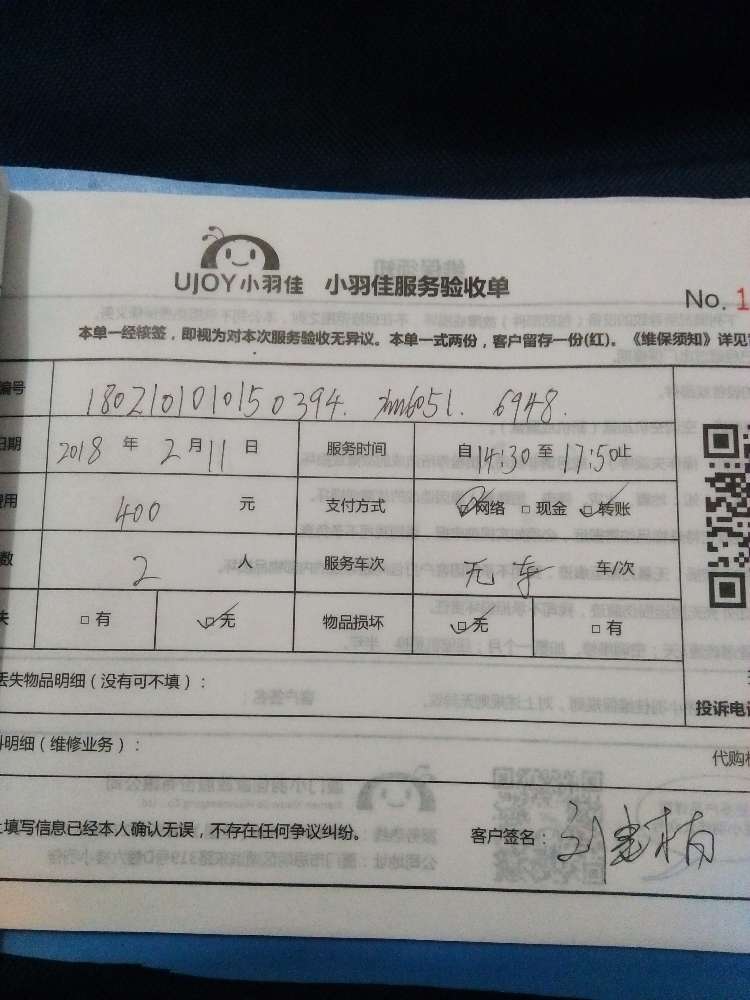 UJOY小羽佳 小羽佳服务验收单
No. 1
本单一经核签，即视为对本次服务验收无异议。本单一式两份，客户留存一份(红)。《维保须知》详见
编号 1802101010150394. 6051. 6948.
日期 2018 年 2 月 11 日 服务时间 自14:30 至 17:50止
费用 400 元 支付方式 ☑网络 □现金 ☑转账
数 2 人 服务车次 无车 车/次
失 □有 ☑无 物品损坏 ☑无 □有
丢失物品明细（没有可不填）：
投诉电
料明细（维修业务）：
代购
填写信息已经本人确认无误，不存在任何争议纠纷。 客户签名：